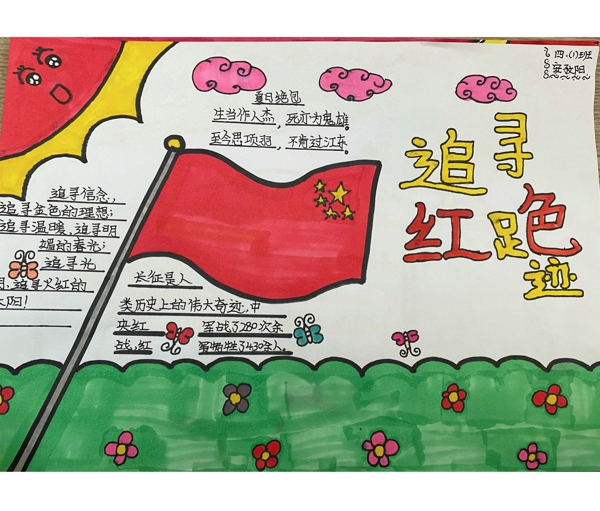 四、(1)班
安致阳
追寻
红色
足迹
夏日绝句
生当作人杰，死亦为鬼雄。
至今思项羽，不肯过江东。
追寻信念，
追寻金色的理想；
追寻温暖，追寻明
媚的春光；
追寻光
明，追寻火红的
太阳！
长征是人
类历史上的伟大奇迹，中
央红 军战了280次余
战，红 军牺牲了430余人。